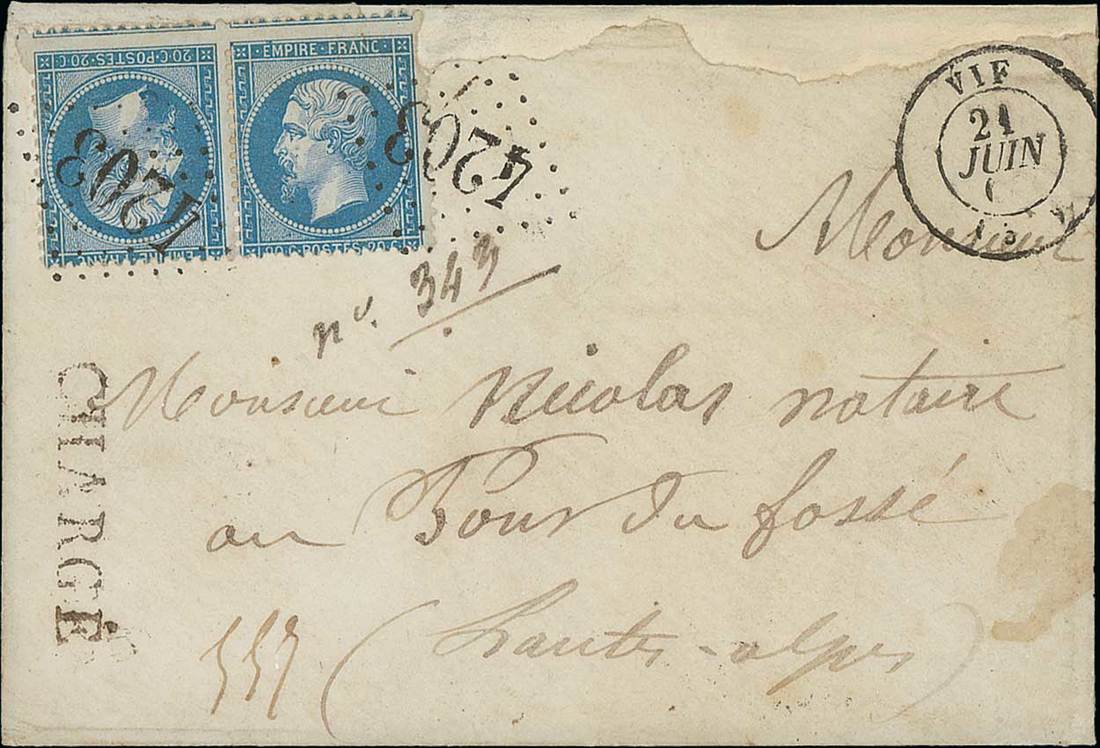 20·C·POSTES·20·C
EMPIRE · FRANC ·
4203
4203
VIF
21
JUIN
Monsieur
n°. 343
CHARGÉ
Monsieur Nicolas notaire
au Four du fossé
557
(hautes-alpes)